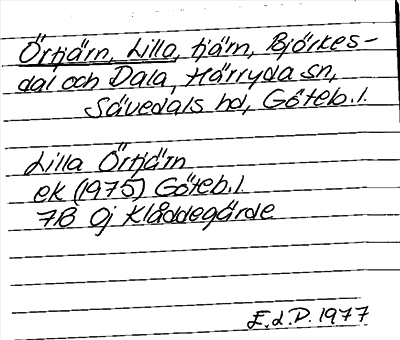 Örtjärn, Lilla, tjärn, Björkes-
dal och Dala, Härryda sn,
Sävedals hd, Göteb. l.
Lilla Örtjärn
ek (1975) Göteb. l.
7B 0j Klåddegärde
E.d.D. 1977